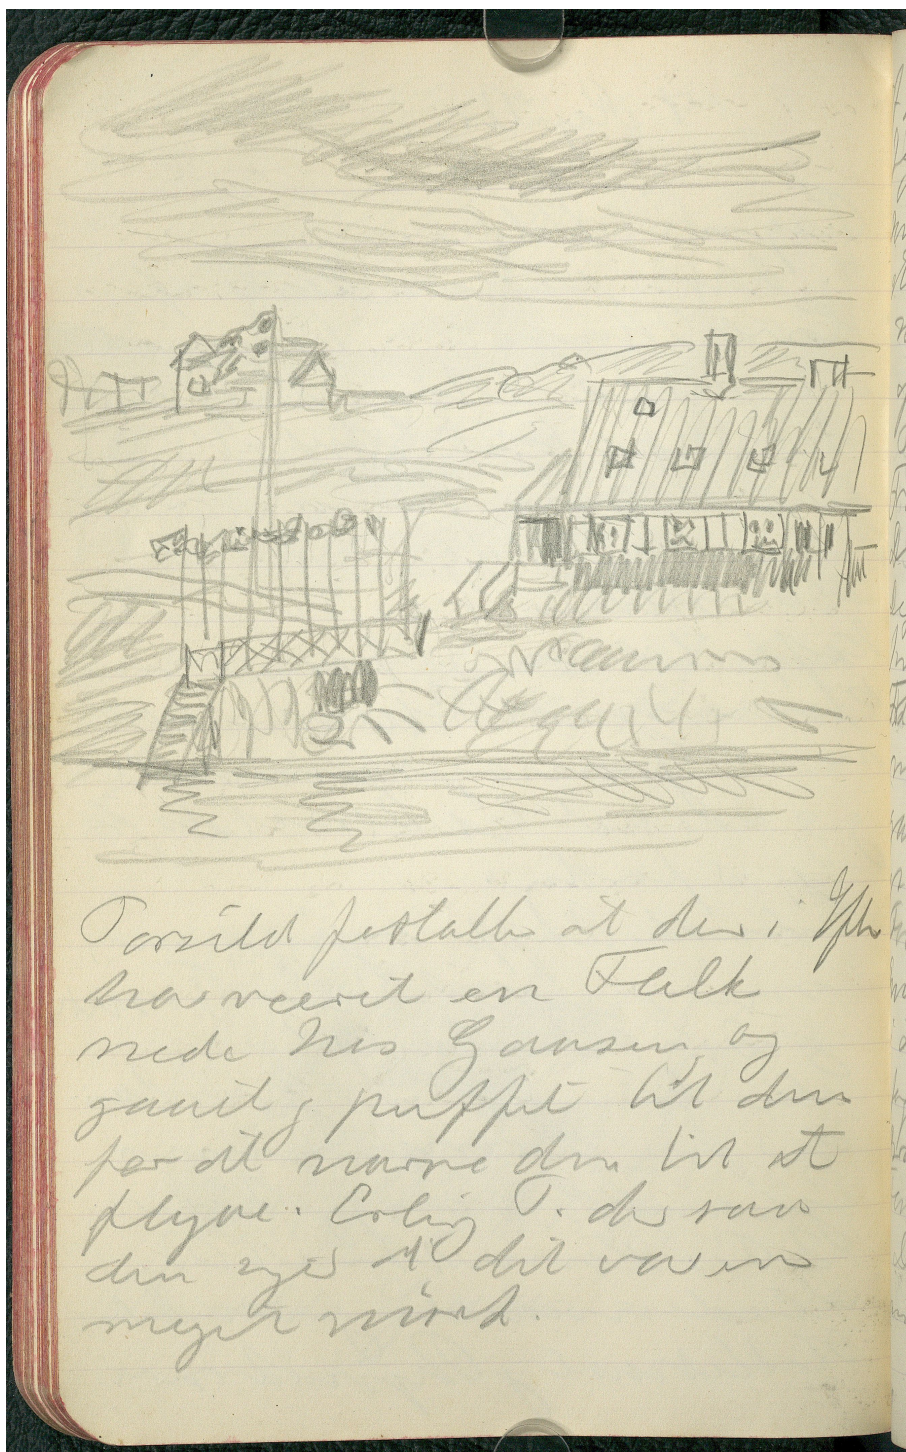 Porsild fortalte at der i Efter
har været en Falk
nede hos Hansen og
gaaet og puffet til den
for at narre den til at
flyve. Erling P. der saa
den siger at det var en
meget mörk.